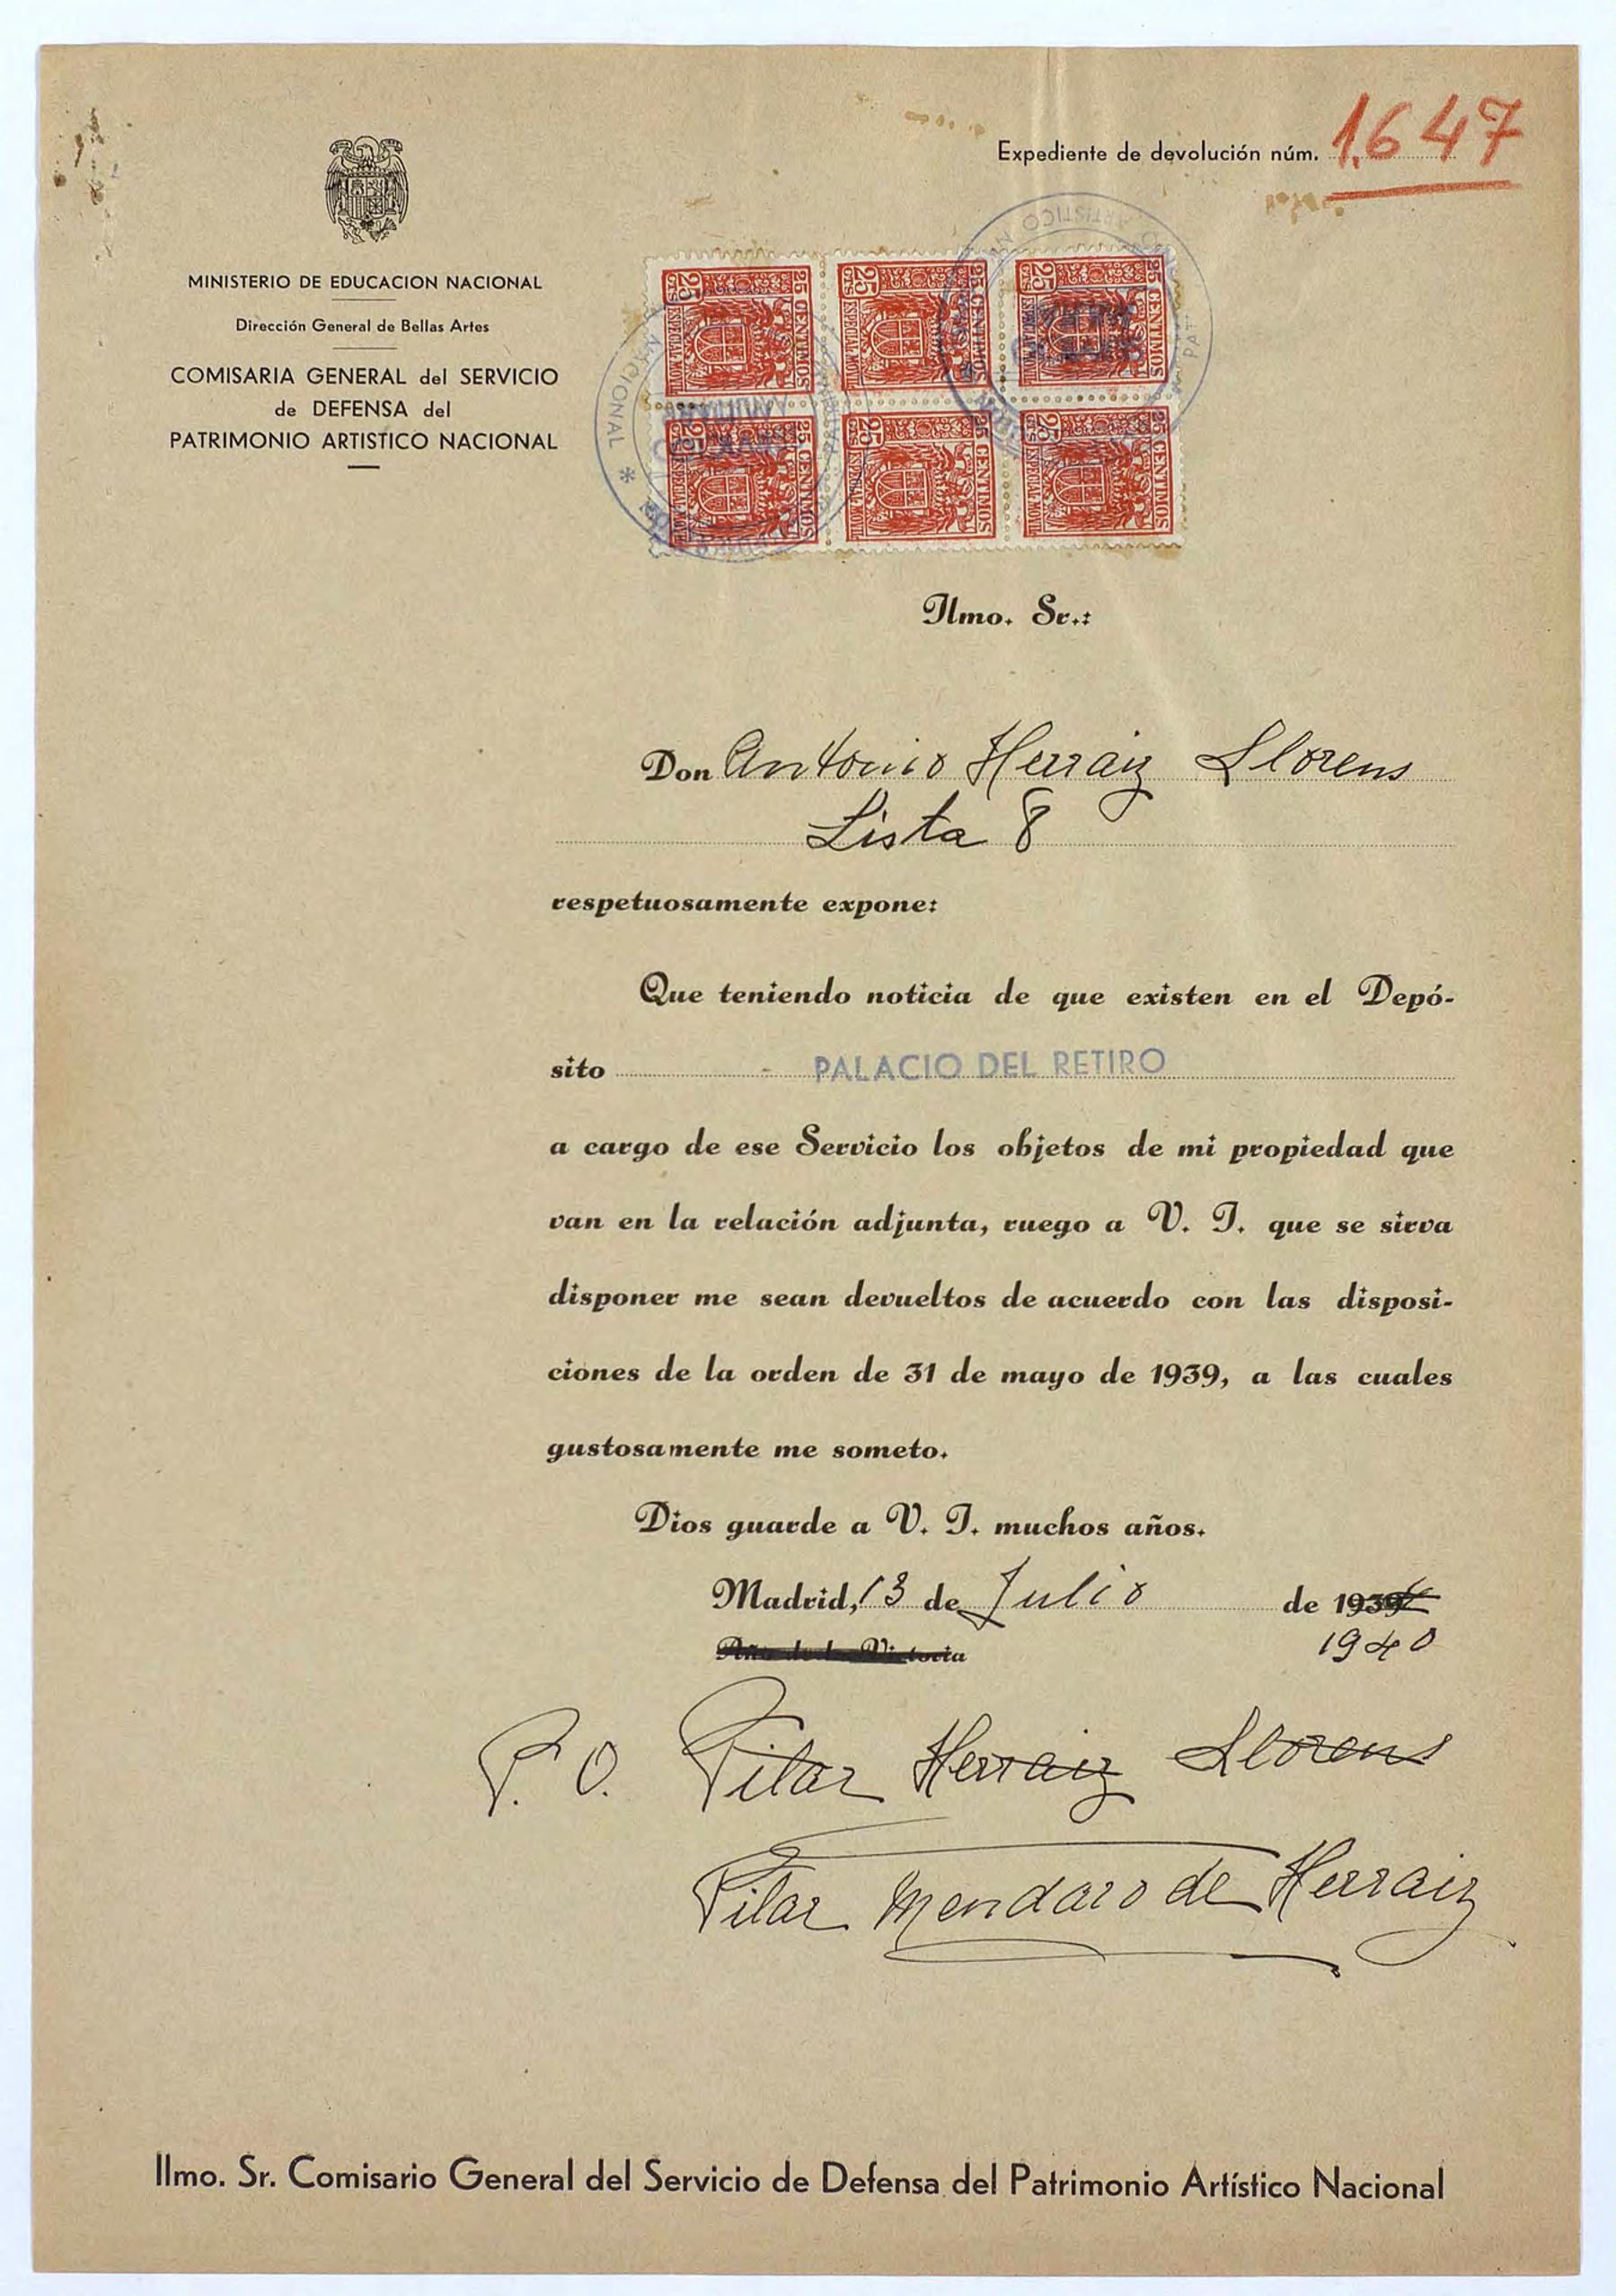 Expediente de devolución núm. 1.647
MINISTERIO DE EDUCACION NACIONAL
Dirección General de Bellas Artes
COMISARIA GENERAL del SERVICIO
de DEFENSA del
PATRIMONIO ARTISTICO NACIONAL
25 CTS 25 CENTIMOS ESPECIAL MOVIL
25 CTS 25 CENTIMOS ESPECIAL MOVIL
25 CTS 25 CENTIMOS ESPECIAL MOVIL
25 CTS 25 CENTIMOS ESPECIAL MOVIL
25 CTS 25 CENTIMOS ESPECIAL MOVIL
25 CTS 25 CENTIMOS ESPECIAL MOVIL
NACIONAL *
ARTISTICO
Ilmo. Sr.:
Don Antonio Herraiz Llorens
Lista 8
respetuosamente expone:
Que teniendo noticia de que existen en el Depó-
sito PALACIO DEL RETIRO
a cargo de ese Servicio los objetos de mi propiedad que
van en la relación adjunta, ruego a V. I. que se sirva
disponer me sean devueltos de acuerdo con las disposi-
ciones de la orden de 31 de mayo de 1939, a las cuales
gustosamente me someto.
Dios guarde a V. I. muchos años.
Madrid, 13 de Julio de 1939
Año de la Victoria 1940
P. O. Pilar Herraiz Llorens
Pilar Mendaro de Herraiz
Ilmo. Sr. Comisario General del Servicio de Defensa del Patrimonio Artístico Nacional